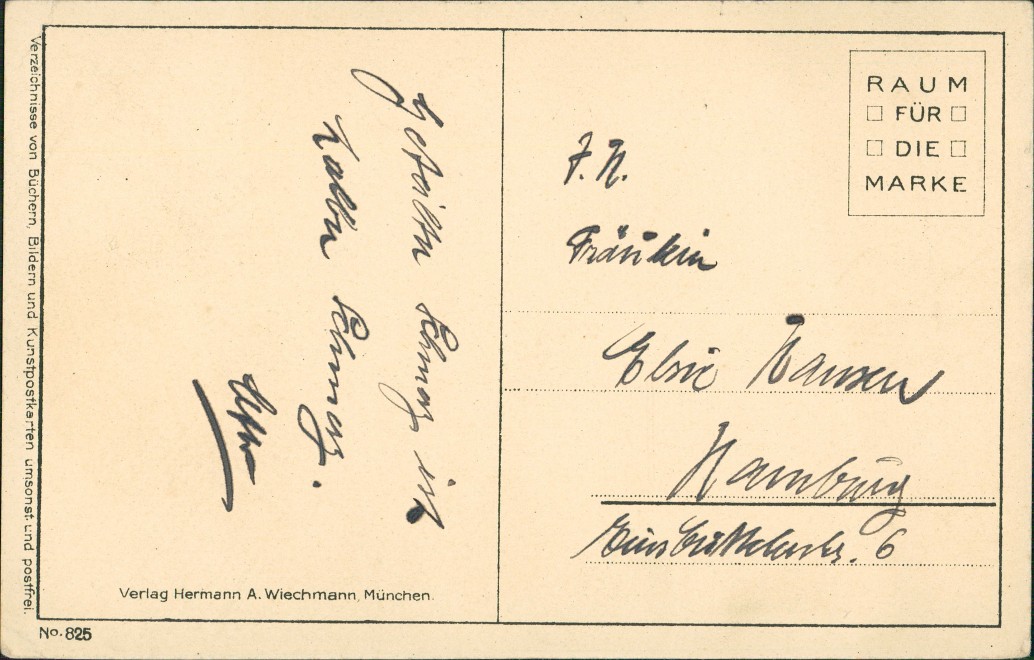 Geteilter Schmerz ist
halber Schmerz.
Verlag Hermann A. Wiechmann, München.
No. 825
Verzeichnisse von Büchern, Bildern und Kunstpostkarten umsonst und postfrei.
RAUM
FÜR
DIE
MARKE
Fräulein
Elsie Hansen
Hamburg
Eimsbüttelerstr. 6